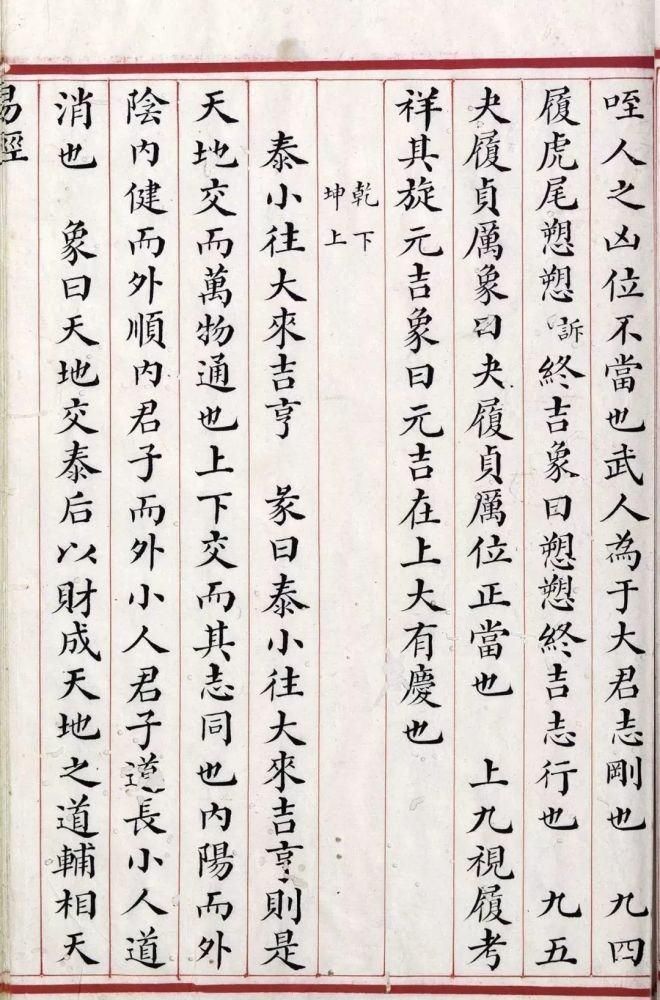 咥人之凶位不當也武人為于大君志剛也　九四
履虎尾愬愬訴終吉象曰愬愬終吉志行也　九五
夬履貞厲象曰夬履貞厲位正當也　上九視履考
祥其旋元吉象曰元吉在上大有慶也
乾下
坤上
泰小往大來吉亨　彖曰泰小往大來吉亨則是
天地交而萬物通也上下交而其志同也內陽而外
陰內健而外順內君子而外小人君子道長小人道
消也　象曰天地交泰后以財成天地之道輔相天
易經